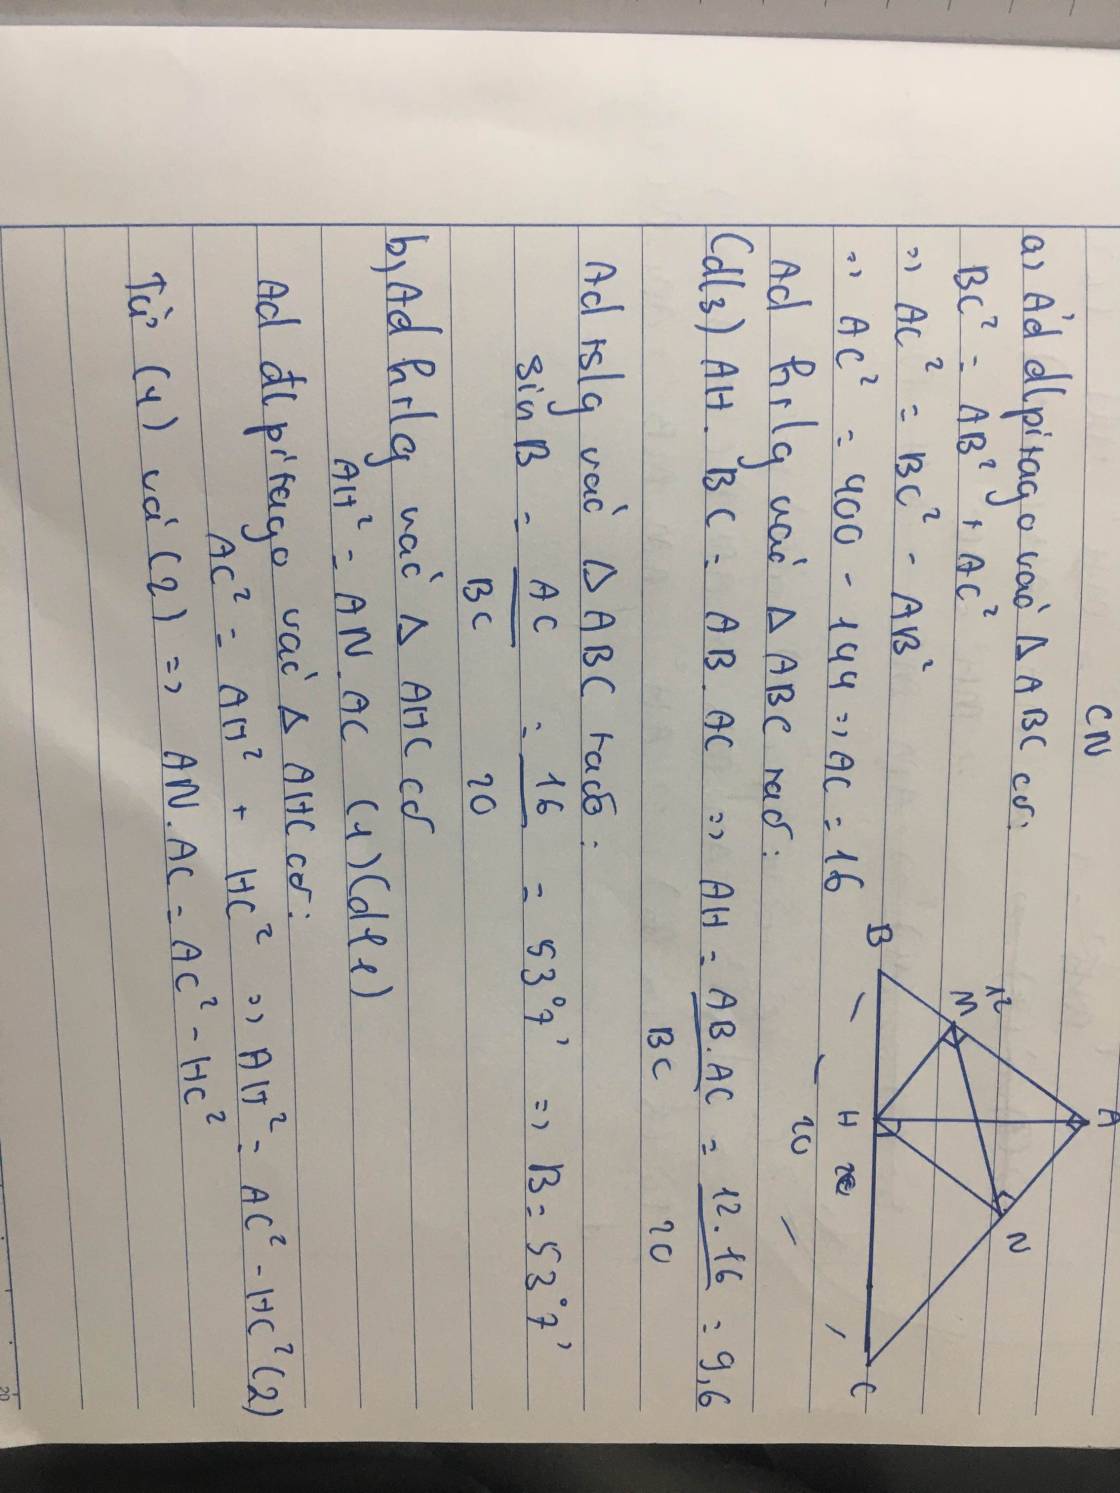 CN
a) Ád đlpitago vào Δ ABC có:
BC² = AB² + AC²
=> AC² = BC² - AB²
=> AC² = 400 - 144 => AC = 16
A
12
M
N
B
H
C
20
Ad hrlg vào Δ ABC taó:
(đl3) AH. BC = AB. AC => AH = AB.AC / BC = 12.16 / 20 = 9,6
Ad tslg vào Δ ABC tacó:
sin B = AC / BC = 16 / 20 = 53°7' => B = 53°7'
b) Ad hrlg vào Δ AHC có
AH² = AN. AC (1) (đl1)
Ad đlpitago vào Δ AHC có:
AC² = AH² + HC² => AH² = AC² - HC² (2)
Từ (1) và (2) => AN. AC = AC² - HC²
20